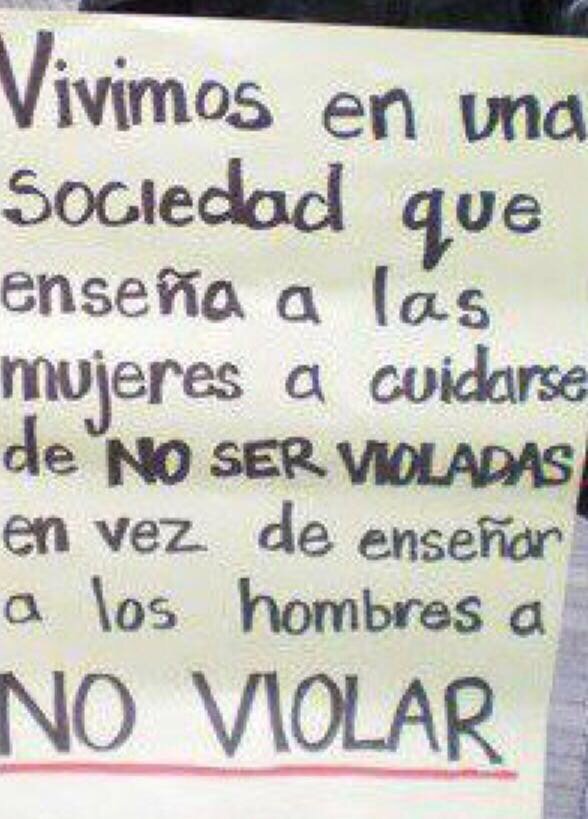 Vivimos en una
sociedad que
enseña a las
mujeres a cuidarse
de NO SER VIOLADAS
en vez de enseñar
a los hombres a
NO VIOLAR